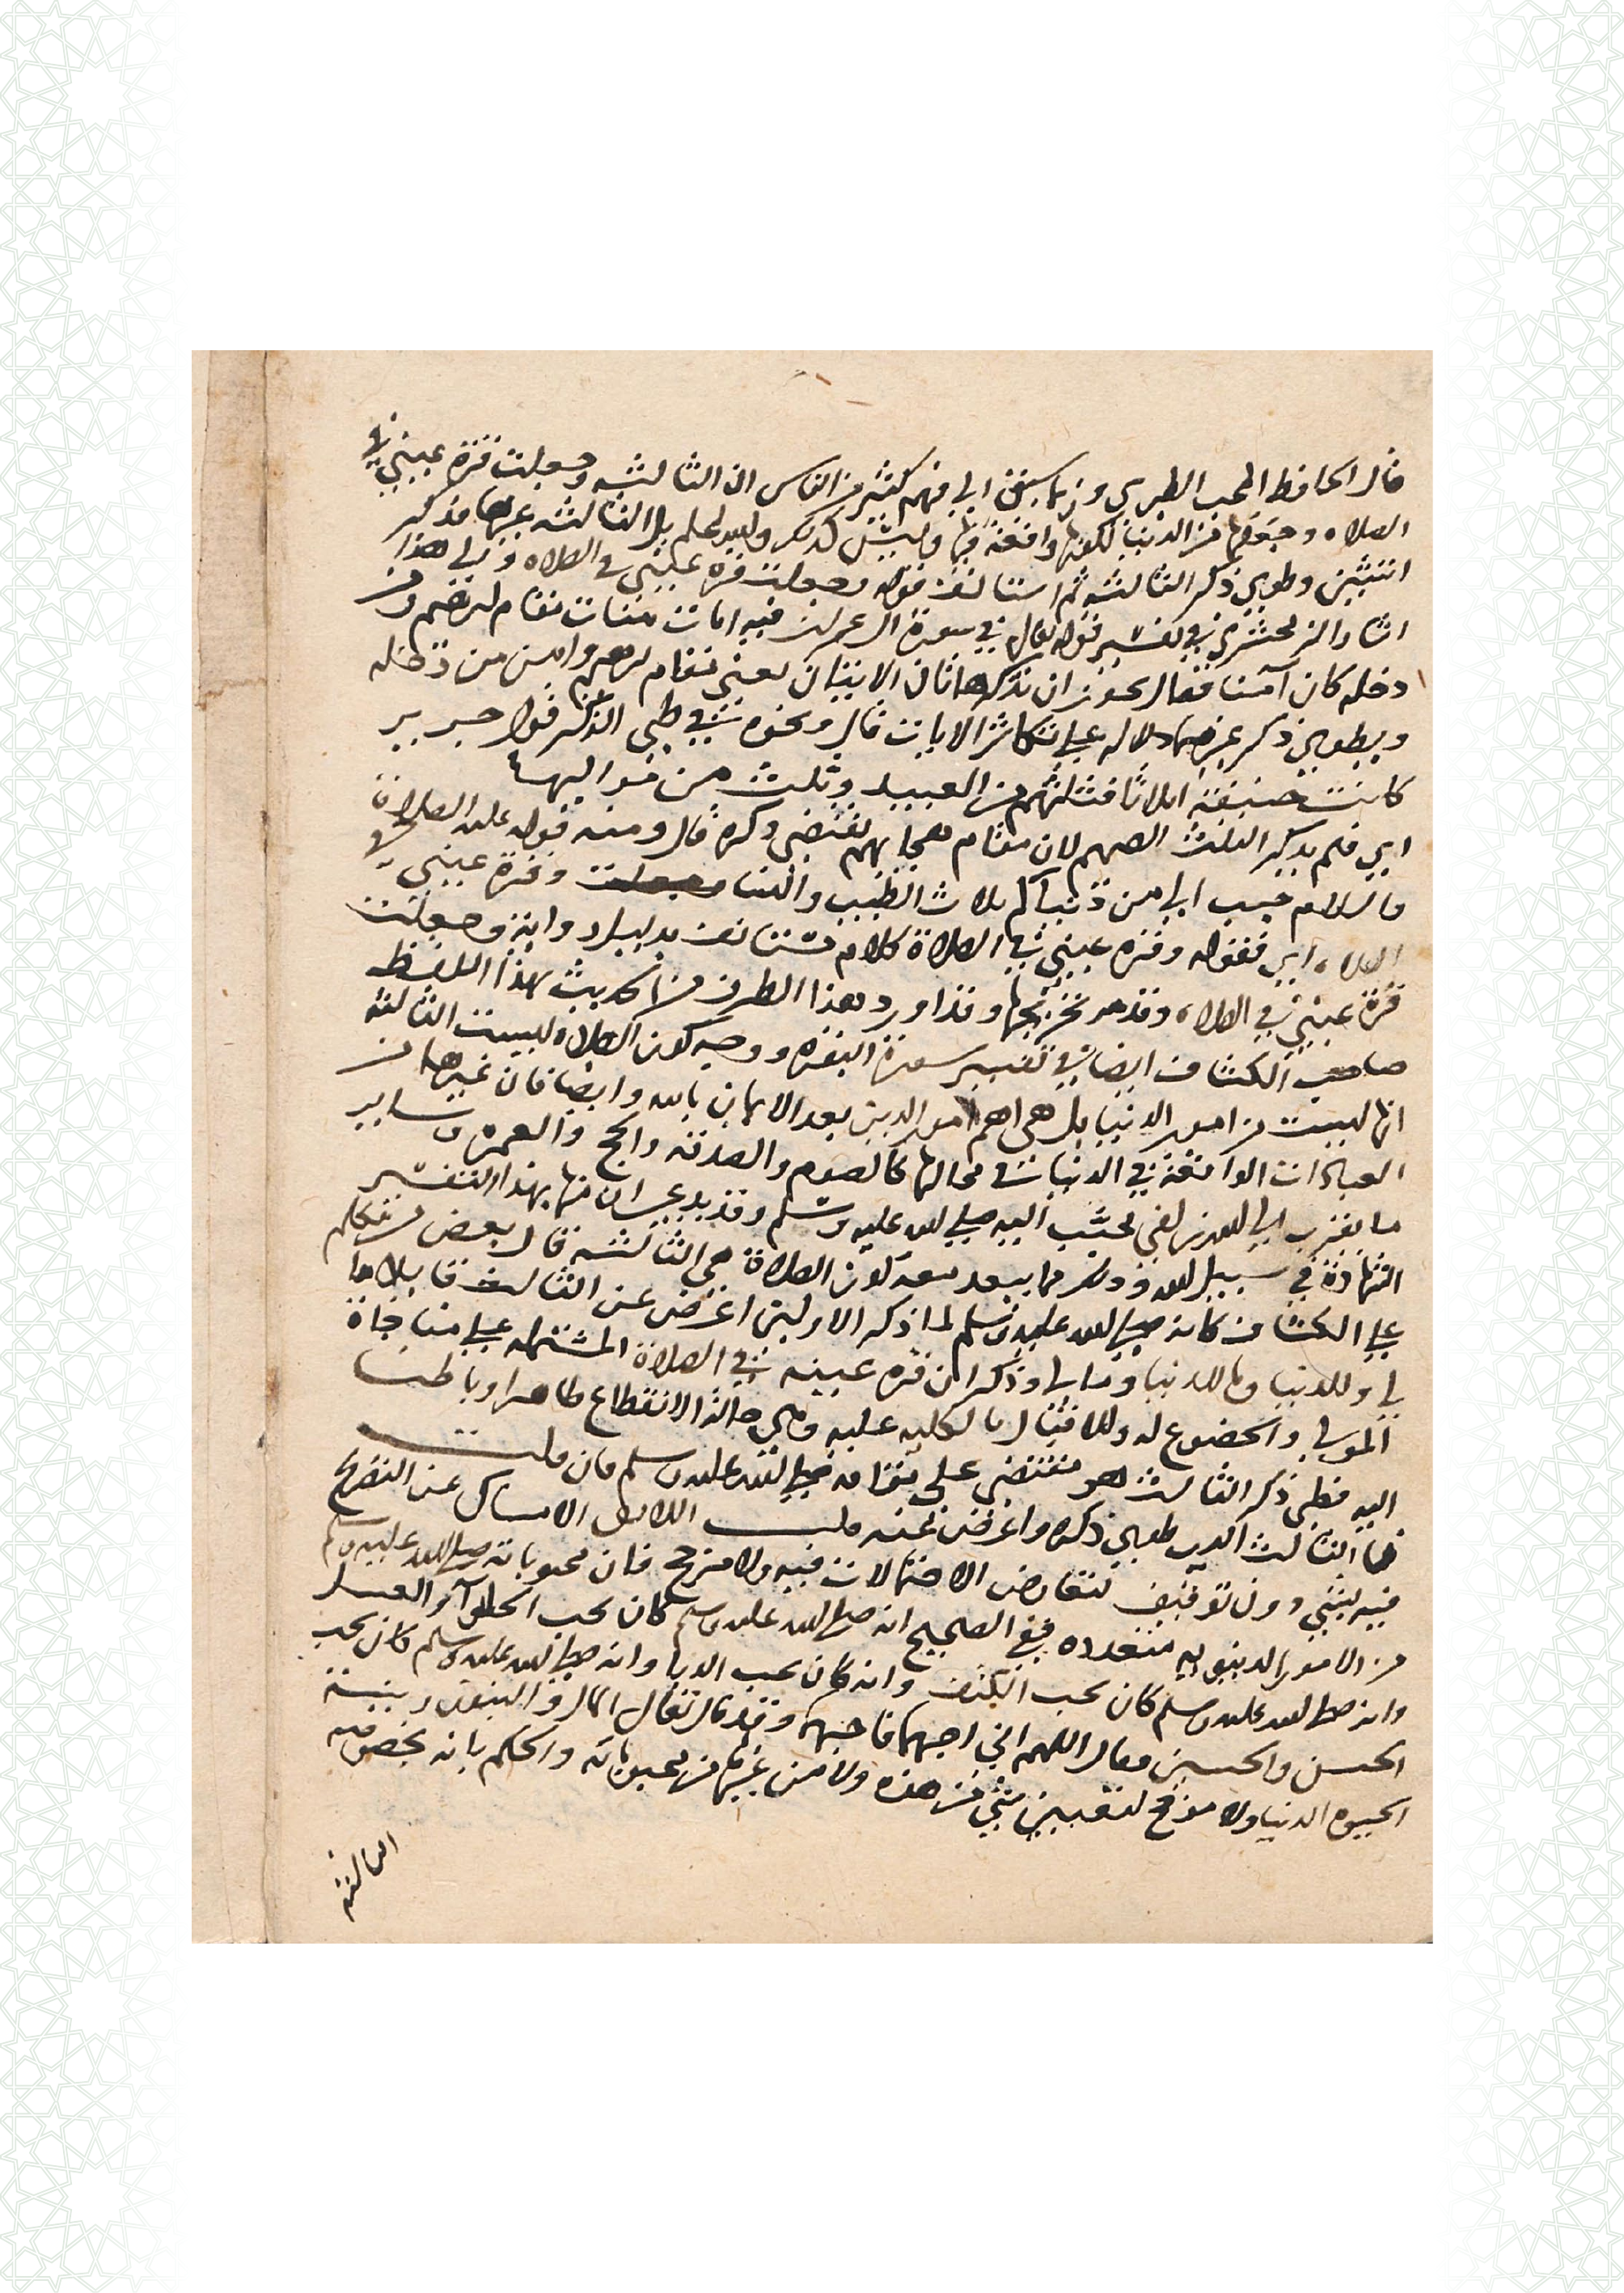 قال الحافظ المحب الطبري وربما سبق الى فهم كثير من الناس ان الثالثه وجعلت قرة عيني في
الصلاه وجعلها من الدنيا لكونها واقعة فيها وليس كذلك بل الثالثه غيرها فذكر
اثنتين وطوى ذكر الثالثه ثم استانف قوله وجعلت قرة عيني في الصلاه والى هذا
اشار الزمخشري في تفسير قوله تعالى في سورة ال عمران فيه ايات بينات مقام ابرهيم ومن
دخله كان آمنا فقال يجوز ان تذكر هاتان الايتان يعني مقام ابرهيم وامن من دخله
ويطوى ذكر غيرهما دلاله على تكاثر الايات قال ونحوه في طي الذكر قول جرير
كانت حنيفة اثلاثا فثلثهم من العبيد وثلث من مواليها
اي فلم يذكر الثلث الصميم لان مقام هجايهم يقتضي ذكره قال ومنه قوله عليه الصلاة
والسلام حبب الي من دنياكم ثلاث الطيب والنسا وقرة عيني في
الصلاه اي فقوله وقرة عيني في الصلاة كلام مستانف بدليل رواية وجعلت
قرة عيني في الصلاه وقد مر تخريجها وقد اورد هذا الطرف من الحديث بهذا اللفظ
صاحب الكشاف ايضا في تفسير سورة البقره ووجه كون الصلاه ليست الثالثه
انها ليست من امور الدنيا بل هي اهم امور الدين بعد الايمان بالله وايضا فان غيرها من
العبادات الواقعة في الدنيا في محالها كالصوم والصدقه والحج والعمره وساير
ما يقرب الى الله زلفى محبب اليه صلى الله عليه وسلم وقد يدعى ان منها بهذا التفسير
الشهادة في سبيل الله وذلك مما يبعد معه كون الصلاة هي الثالثه قال بعض من تكلم
على الكشاف كانه صلى الله عليه وسلم لما ذكر الاوليين اعرض عن الثالث قايلا ما
لي وللدنيا وما للدنيا وما لي وذكر ان قرة عينه في الصلاة المشتمله على مناجاة
المولى والخضوع له والاقبال بالكليه عليه وهي حالة الانقطاع ظاهرا وباطنا
اليه فطي ذكر الثالث هو مقتضى على مقامه صلى الله عليه وسلم فان قلت
فما الثالث الذي طوى ذكره واعرض عنه قلت اللايق الامساك عن التصريح
فيه بشي دون توقيف لتعارض الاحتمالات فيه ولا مرجح فان محبوباته صلى الله عليه وسلم
من الامور الدنيويه متعدده ففي الصحيح انه صلى الله عليه وسلم كان يحب الحلوآء والعسل
وانه صلى الله عليه وسلم كان يحب الكتف وانه كان يحب الدبا وانه صلى الله عليه وسلم كان يحب
الحسن والحسين وقال اللهم اني احبهما فاحبهما وقد قال تعالى المال والبنون زينة
الحيوه الدنيا ولا مرجح لتعيين شي من هذه ولا من غيرها من محبوباته والحكم بانه بخصوصه
الثالثه